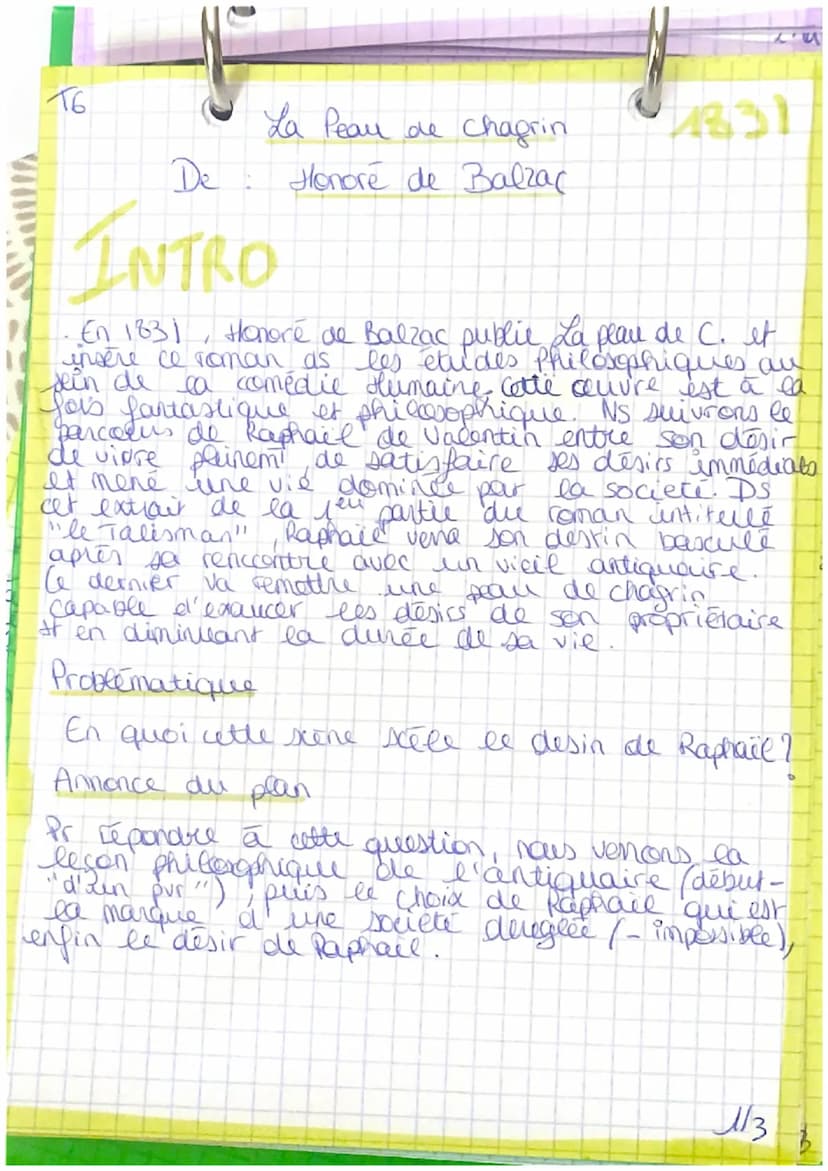 T6
La Peau de Chagrin
1831
De : Honoré de Balzac
INTRO
. En 1831, Honoré de Balzac publie La peau de C. et
insère ce roman ds les études Philosophiques au
sein de sa comédie Humaine. Cette œuvre est à la
fois fantastique et philosophique. Ns suivrons le
parcours de Raphaël de Valentin entre son désir
de vivre pleinemt, de satisfaire ses désirs immédiats
et mené une vie dominée par la société. Ds
cet extrait de la 1ère partie du roman intitulé
"le Talisman", Raphaël verra son destin basculé
après sa rencontre avec un vieil antiquaire.
Ce dernier va remettre une peau de chagrin
capable d'exaucer les désirs de son propriétaire
tt en diminuant la durée de sa vie.
Problématique
En quoi cette scène scèle le desin de Raphaël ?
Annonce du plan
Pr répondre à cette question, nous verrons la
leçon philosophique de l'antiquaire (début-
"d'un pur"), puis le choix de Raphaël qui est
la marque d'une société dereglée (- impossible),
enfin le désir de Raphaël.
1/3